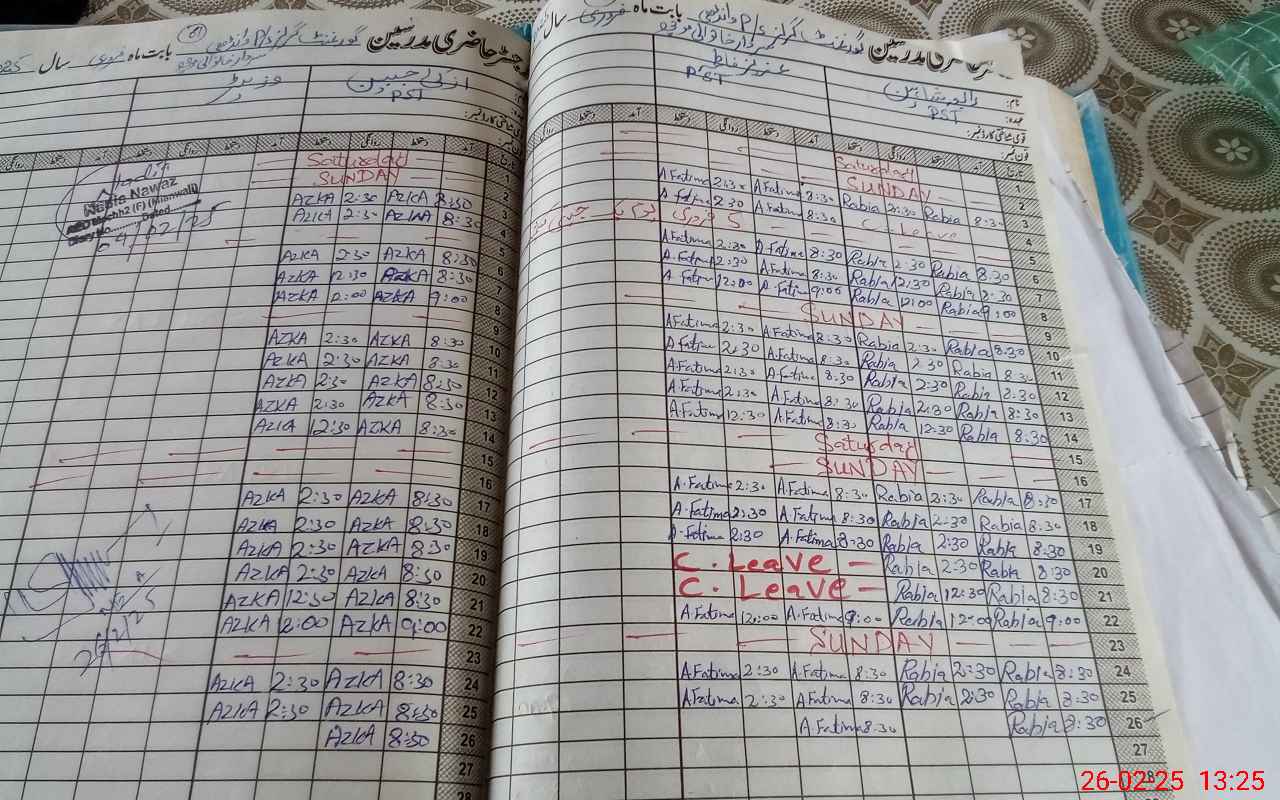 رجسٹر حاضری مدرسین گورنمنٹ گرلز P/S وانڈھی
بابت ماہ فروری سال 2025
PST
وزیٹر
قومی شناختی کارڈ نمبر:
فون نمبر:
Saturday 1
SUNDAY 2
AZKA 2:30 AZKA 8:30 3
AZKA 2:30 AZKA 8:30 4
5
AZKA 2:30 AZKA 8:30 6
AZKA 12:30 AZKA 8:30 7
AZKA 2:00 AZKA 9:00 8
9
AZKA 2:30 AZKA 8:30 10
AZKA 2:30 AZKA 8:30 11
AZKA 2:30 AZKA 8:30 12
AZKA 2:30 AZKA 8:30 13
AZKA 12:30 AZKA 8:30 14
15
16
AZKA 2:30 AZKA 8:30 17
AZKA 2:30 AZKA 8:30 18
AZKA 2:30 AZKA 8:30 19
AZKA 2:30 AZKA 8:30 20
AZKA 12:30 AZKA 8:30 21
AZKA 2:00 AZKA 9:00 22
23
AZKA 2:30 AZKA 8:30 24
AZKA 2:30 AZKA 8:30 25
AZKA 8:30 26
27
28
Nadia Nawaz
(F) (Mianwali)
Dated
04/02/25
حاضری مدرسین گورنمنٹ گرلز P/S وانڈھی
بابت ماہ فروری سال
نام:
عہدہ:
PST
PST
قومی شناختی کارڈ نمبر:
فون نمبر:
Saturday 1
SUNDAY 2
A.Fatima 2:30 A.Fatima 8:30 Rabia 2:30 Rabia 8:30 3
A.Fatima 2:30 A.Fatima 8:30 C.Leave 4
5 فروری 5
A.Fatima 2:30 A.Fatima 8:30 Rabia 2:30 Rabia 8:30 6
A.Fatima 12:30 A.Fatima 8:30 Rabia 12:30 Rabia 8:30 7
A.Fatima 12:00 A.Fatima 9:00 Rabia 12:00 Rabia 9:00 8
SUNDAY 9
A.Fatima 2:30 A.Fatima 8:30 Rabia 2:30 Rabia 8:30 10
A.Fatima 2:30 A.Fatima 8:30 Rabia 2:30 Rabia 8:30 11
A.Fatima 2:30 A.Fatima 8:30 Rabia 2:30 Rabia 8:30 12
A.Fatima 2:30 A.Fatima 8:30 Rabia 2:30 Rabia 8:30 13
A.Fatima 12:30 A.Fatima 8:30 Rabia 12:30 Rabia 8:30 14
Saturday 15
SUNDAY 16
A.Fatima 2:30 A.Fatima 8:30 Rabia 2:30 Rabia 8:30 17
A.Fatima 2:30 A.Fatima 8:30 Rabia 2:30 Rabia 8:30 18
A.Fatima 2:30 A.Fatima 8:30 Rabia 2:30 Rabia 8:30 19
C. Leave Rabia 2:30 Rabia 8:30 20
C. Leave Rabia 12:30 Rabia 8:30 21
A.Fatima 12:00 A.Fatima 9:00 Rabia 12:00 Rabia 9:00 22
SUNDAY 23
A.Fatima 2:30 A.Fatima 8:30 Rabia 2:30 Rabia 8:30 24
A.Fatima 2:30 A.Fatima 8:30 Rabia 2:30 Rabia 8:30 25
A.Fatima 8:30 Rabia 8:30 26
27
28
26-02-25 13:25